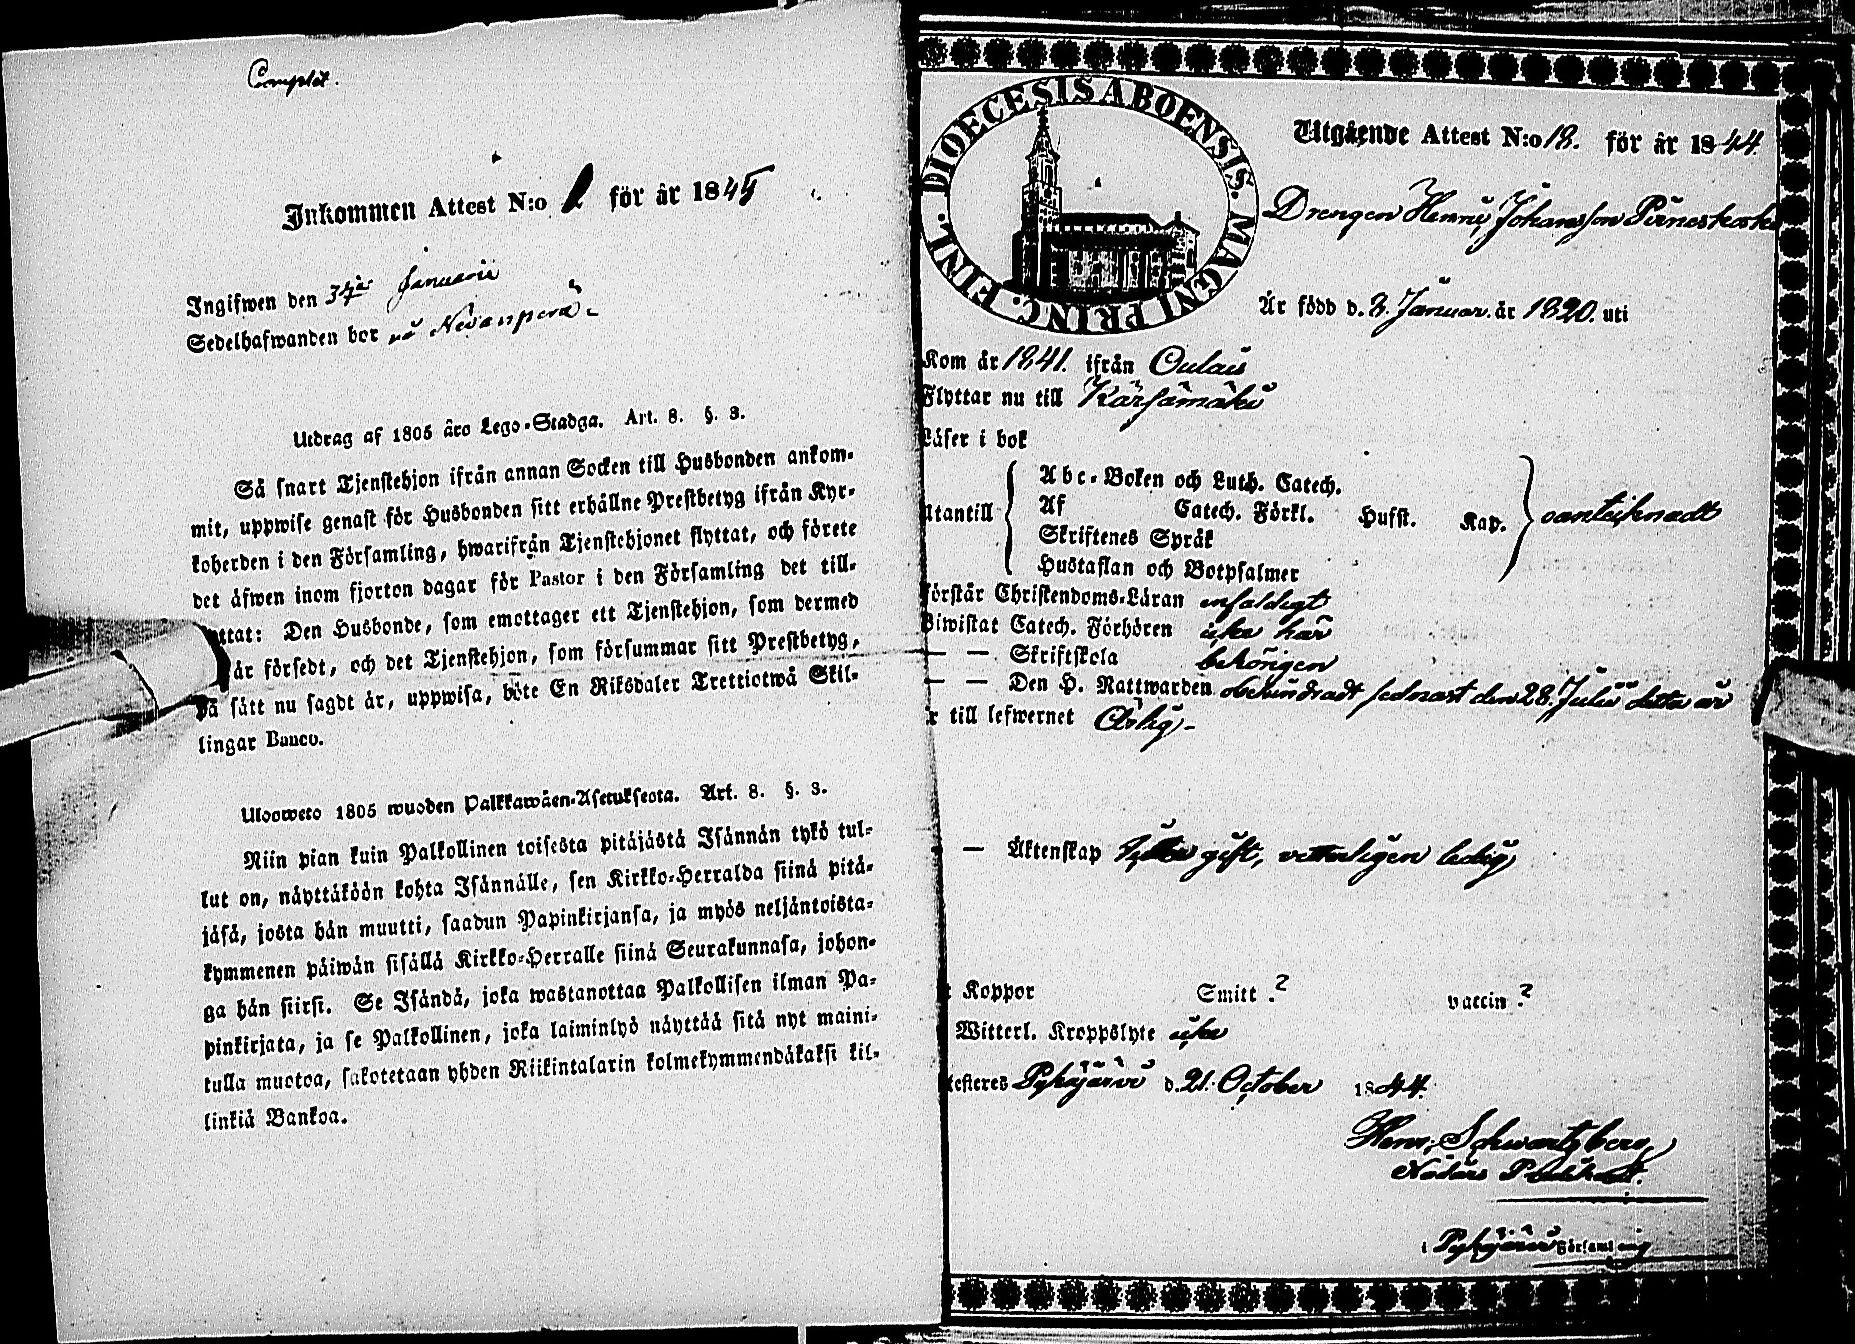 Complet.
Inkommen Attest N:o 1 för år 1845
Ingifwen den 3dje Januarii
Sedelhafwanden bor på Nevanperä
Utdrag af 1805 års Lego-Stadga. Art. 8. §. 3.
Så snart Tjenstehjon ifrån annan Socken till Husbonden ankom-
mit, uppwise genast för Husbonden sitt erhållne Prestbetyg ifrån Kyr-
koherden i den Församling, hwarifrån Tjenstehjonet flyttat, och förete
det äfwen inom fjorton dagar för Pastor i den Församling det till-
yttat: Den Husbonde, som emottager ett Tjenstehjon, som dermed
är försedt, och det Tjenstehjon, som försummar sitt Prestbetyg,
på sätt nu sagdt är, uppwisa, böte En Riksdaler Trettiotwå Skil-
lingar Banco.
Uloosweto 1805 wuoden Palkkawäen-Asetuksesta. Art. 8. §. 3.
Niin pian kuin Palkollinen toisesta pitäjästä Isännän tykö tul-
lut on, näyttäköön kohta Isännälle, sen Kirkko-Herralda siinä pitä-
jäsä, josta hän muutti, saadun Papinkirjansa, ja myös neljäntoista-
kymmenen päiwän sisällä Kirkko-Herralle siinä Seurakunnasa, johon-
ga hän siirsi. Se Isändä, joka wastanottaa Palkollisen ilman Pa-
pinkirjata, ja se Palkollinen, joka laiminlyö näyttää sitä nyt maini-
tulla muotoa, sakotetaan yhden Riikintalarin kolmekymmendäkaksi kil-
linkiä Bankoa.
DIOECESIS ABOENSIS. MAGNI PRINC. FINL.
Utgående Attest N:o 18. för år 1844
Drengen Henric Johansson Pirneskoski
Är född d. 3. Januar. år 1820. uti
Kom år 1841. ifrån Oulais
Flyttar nu till Kärsämäki
Läser i bok
utantill
Abc-Boken och Luth. Catech.
Af Catech. Förkl. Hufst. Kap.
Skriftenes Språk
Hustaflan och Botpsalmer
oanteknadt
Förstår Christendoms-Läran enfaldigt
Biwistat Catech. Förhören icke här
— — Skriftskola behörigen
— — Den H. Nattwarden obehindradt sednast den 28. Julii detta år
r till lefwernet Ärlig.
— Äktenskap icke gift, vitterligen ledig
t Koppor Smitt.? vaccin.?
Witterl. Kroppslyte icke
testeres Pyhäjärvi d. 21. October 1844.
Henr. Schwartzberg
i Pyhäjärvi Församling